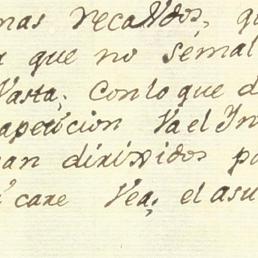 mas recaVdos, qu
a que no semal
Vasta; Con lo que d
apeticion Va el In
an dirixidos po
care Vea, el asu